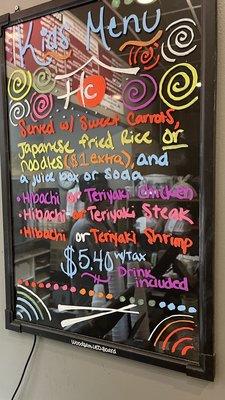 Kids Menu
HC
Served w/ Sweet Carrots,
Japanese fried Rice or
noodles ($1 extra), and
a juice box or soda
• Hibachi or Teriyaki Chicken
• Hibachi or Teriyaki Steak
• Hibachi or Teriyaki Shrimp
$5.40 w/tax
Drink
included
Woodsam LED Board